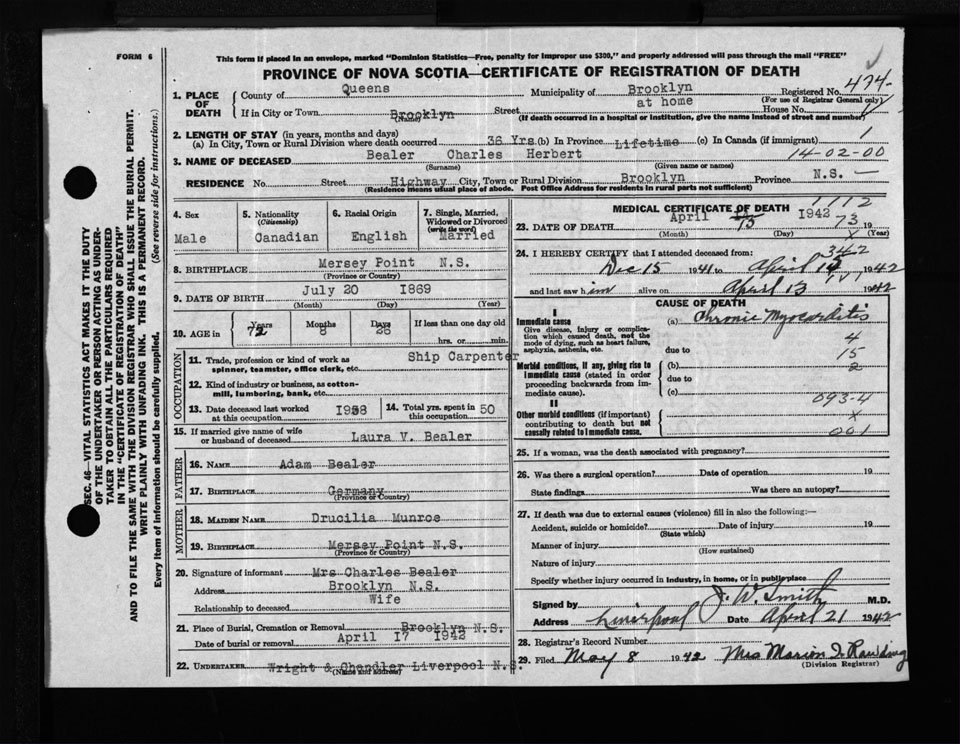 FORM 6
This form if placed in an envelope, marked "Dominion Statistics—Free, penalty for improper use $300," and properly addressed will pass through the mail "FREE"
PROVINCE OF NOVA SCOTIA—CERTIFICATE OF REGISTRATION OF DEATH
SEC. 46—VITAL STATISTICS ACT MAKES IT THE DUTY
OF THE UNDERTAKER OR PERSON ACTING AS UNDER-
TAKER TO OBTAIN ALL THE PARTICULARS REQUIRED
IN THE "CERTIFICATE OF REGISTRATION OF DEATH"
AND TO FILE THE SAME WITH THE DIVISION REGISTRAR WHO SHALL ISSUE THE BURIAL PERMIT.
WRITE PLAINLY WITH UNFADING INK. THIS IS A PERMANENT RECORD.
Every item of information should be carefully supplied. (See reverse side for instructions.)
1. PLACE OF DEATH
County of Queens Municipality of Brooklyn Registered No. 474
(For use of Registrar General only)
If in City or Town Brooklyn Street at home House No.
(Name) (If death occurred in a hospital or institution, give the name instead of street and number)
2. LENGTH OF STAY (in years, months and days)
(a) In City, Town or Rural Division where death occurred 36 Yrs. (b) In Province Lifetime (c) In Canada (if immigrant) 1
3. NAME OF DECEASED Bealer Charles Herbert 14-02-00
(Surname) (Given name or names)
RESIDENCE No. Street Highway City, Town or Rural Division Brooklyn Province N.S. —
(Residence means usual place of abode. Post Office Address for residents in rural parts not sufficient)
4. Sex
Male
5. Nationality
(Citizenship)
Canadian
6. Racial Origin
English
7. Single, Married,
Widowed or Divorced
(write the word)
Married
8. BIRTHPLACE Mersey Point N.S.
(Province or Country)
9. DATE OF BIRTH July 20 1869
(Month) (Day) (Year)
10. AGE in Years 72 Months 8 Days If less than one day old
hrs. or min.
OCCUPATION
11. Trade, profession or kind of work as
spinner, teamster, office clerk, etc. Ship Carpenter
12. Kind of industry or business, as cotton-
mill, lumbering, bank, etc.
13. Date deceased last worked
at this occupation
14. Total yrs. spent in
this occupation 50
15. If married give name of wife
or husband of deceased Laura V. Bealer
FATHER
16. NAME Adam Bealer
17. BIRTHPLACE Germany
(Province or Country)
MOTHER
18. MAIDEN NAME Drucilia Munroe
19. BIRTHPLACE Mersey Point N.S.
(Province or Country)
20. Signature of informant Mrs Charles Bealer
Address Brooklyn N.S.
Relationship to deceased Wife
21. Place of Burial, Cremation or Removal Brooklyn N.S.
Date of burial or removal April 17 1942
22. UNDERTAKER Wright & Chandler Liverpool N.S.
(Name and address)
MEDICAL CERTIFICATE OF DEATH 1112
23. DATE OF DEATH April 13 1942 73 19
(Month) (Day) (Year)
24. I HEREBY CERTIFY that I attended deceased from: 342
Dec 15 1941 to April 1942
and last saw him alive on April 13 1942
CAUSE OF DEATH
I
Immediate cause
Give disease, injury or complica-
tion which caused death, not the
mode of dying, such as heart failure,
asphyxia, asthenia, etc.
(a) Chronic Myocarditis
4
due to 15
Morbid conditions, if any, giving rise to
Immediate cause (stated in order
proceeding backwards from im-
mediate cause).
(b) 2
due to
(c) 093-4
II
Other morbid conditions (if important)
contributing to death but not
causally related to immediate cause.
x
001
25. If a woman, was the death associated with pregnancy?
26. Was there a surgical operation? Date of operation 19
State findings Was there an autopsy?
27. If death was due to external causes (violence) fill in also the following:—
Accident, suicide or homicide? Date of injury 19
(State which)
Manner of injury
(How sustained)
Nature of injury
Specify whether injury occurred in industry, in home, or in public place
Signed by J. W. Smith M.D.
Address Liverpool Date April 21 1942
28. Registrar's Record Number
29. Filed May 8 1942 Mrs Marion
(Division Registrar)